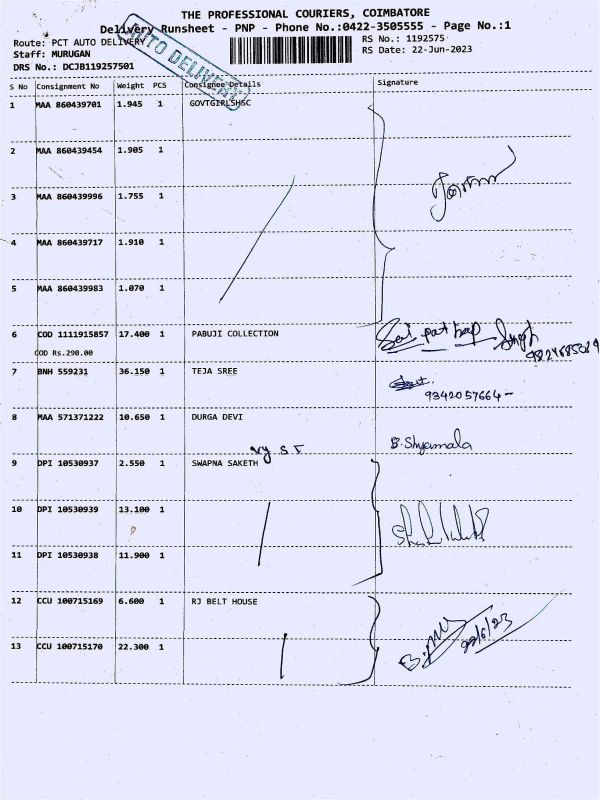 THE PROFESSIONAL COURIERS, COIMBATORE
Delivery Runsheet - PNP - Phone No.:0422-3505555 - Page No.:1
Route: PCT AUTO DELIVERY
RS No.: 1192575
Staff: MURUGAN
RS Date: 22-Jun-2023
DRS No.: DCJB119257501
AUTO DELIVERY
S No Consignment No Weight PCS Consignee Details Signature
1 MAA 860439701 1.945 1 GOVTGIRLSHSC
2 MAA 860439454 1.905 1
3 MAA 860439996 1.755 1
4 MAA 860439717 1.910 1
5 MAA 860439983 1.070 1
6 COD 1111915857 17.400 1 PABUJI COLLECTION Sai patbap Singh
COD Rs.290.00
7 BNH 559231 36.150 1 TEJA SREE
9342057664-
8 MAA 571371222 10.650 1 DURGA DEVI B.Shyamala
9 DPI 10530937 2.550 1 SWAPNA SAKETH
10 DPI 10530939 13.100 1
11 DPI 10530938 11.900 1
12 CCU 100715169 6.600 1 RJ BELT HOUSE
22/6/23
13 CCU 100715170 22.300 1